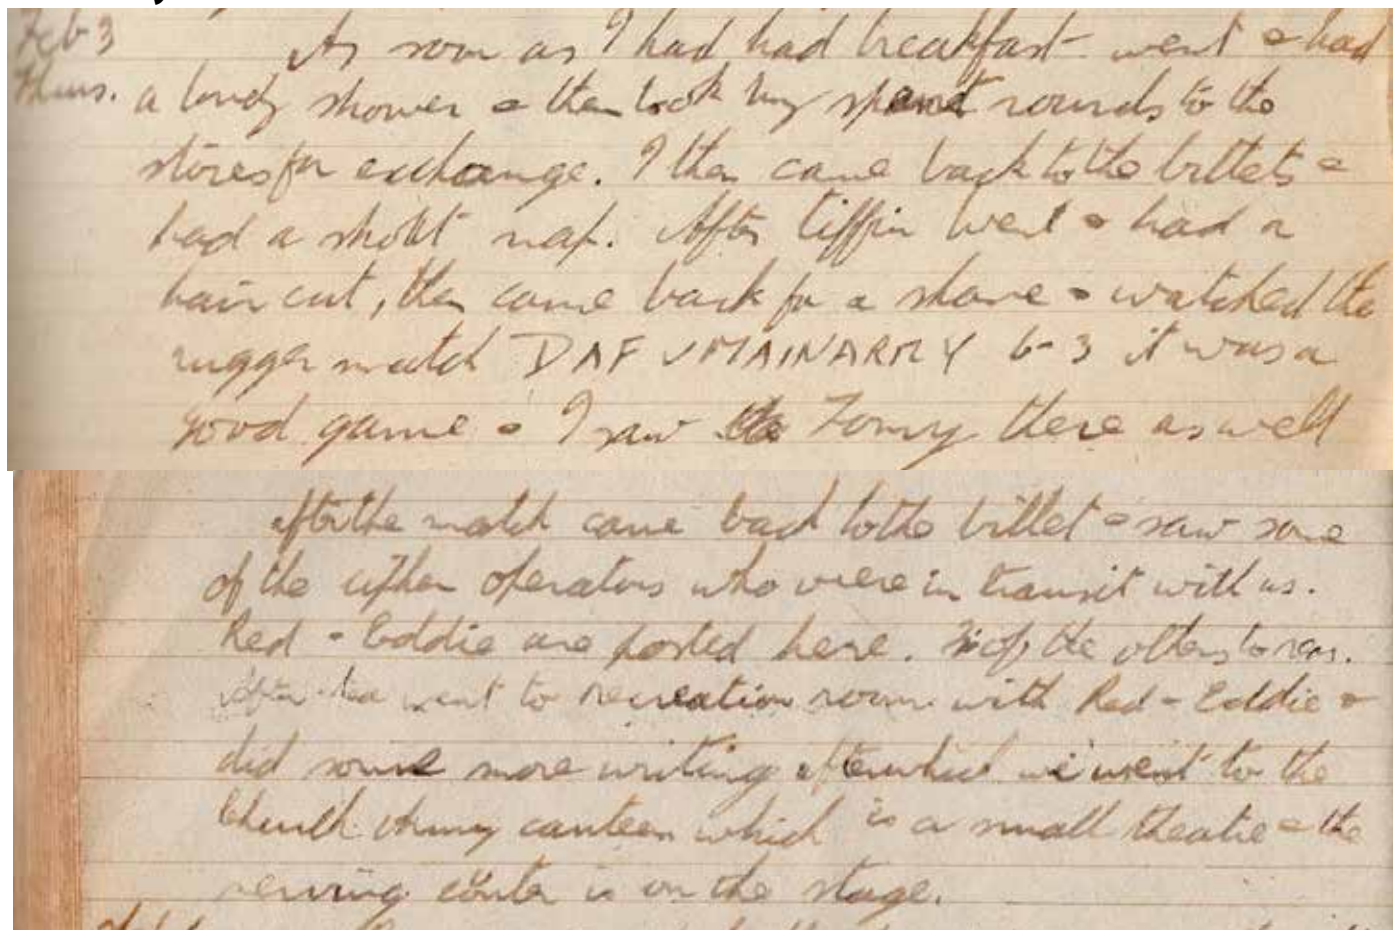 Feb 3 As soon as I had had breakfast went & had
Thurs. a lovely shower & then took my spent rounds to the
stores for exchange. I then came back to the billets &
had a short nap. After tiffin went & had a
hair cut, then came back for a shave & watched the
rugger match DAF V MAINARMY 6-3 it was a
good game & I saw Tomy there as well
after the match came back to the billet & saw some
of the cipher operators who were in transit with us.
Red & Eddie are posted here. the others to
After tea went to recreation room with Red & Eddie &
did some more writing afterwhich we went to the
Church Army canteen which is a small theatre & the
serving counter is on the stage.